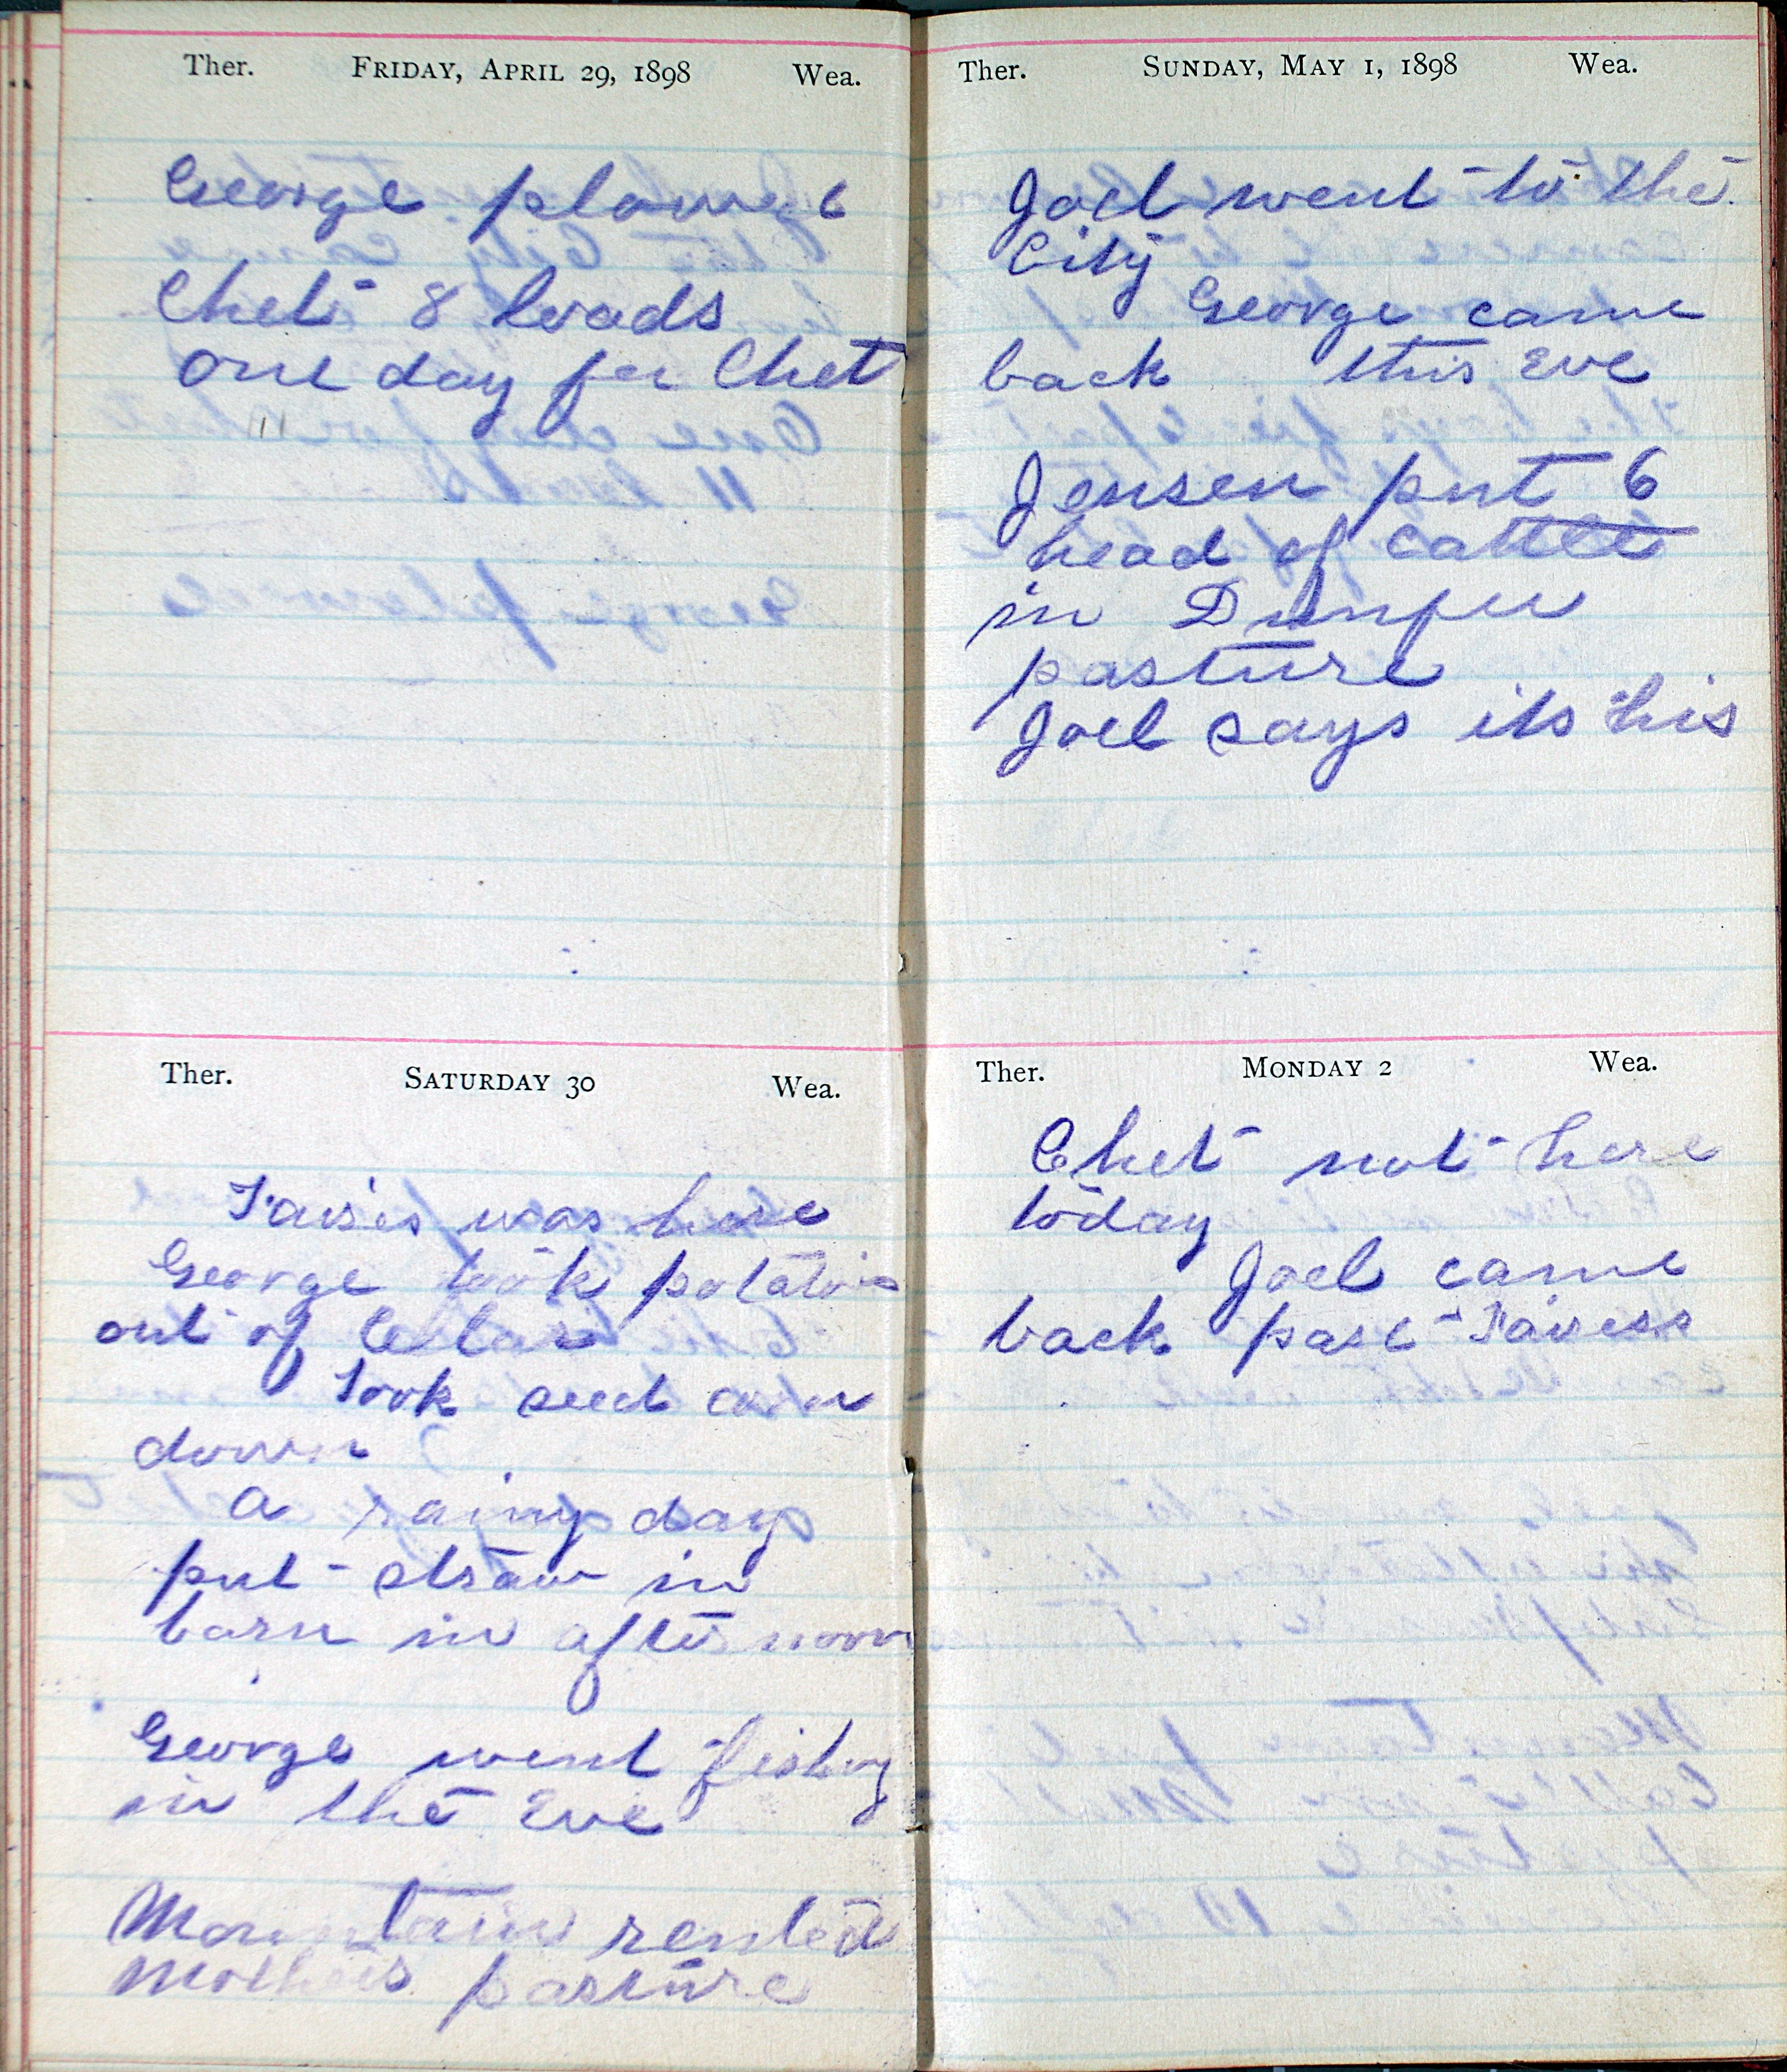 Ther. FRIDAY, APRIL 29, 1898 Wea.
George plowed
Chet 8 loads
one day for Chet
Ther. SATURDAY 30 Wea.
was here
George took potatois
out of Cellar
Took seed corn
down
a rainy day
put straw in
barn in afternoon
George went fishing
in the Eve
Mountain rented
Mothers pasture
Ther. SUNDAY, MAY 1, 1898 Wea.
Joel went to the
City
George came
back this Eve
Jensen put 6
head of cattle
in Dunfee
pasture
Joel says its his
Ther. MONDAY 2 Wea.
Chet not here
today
Joel came
back past